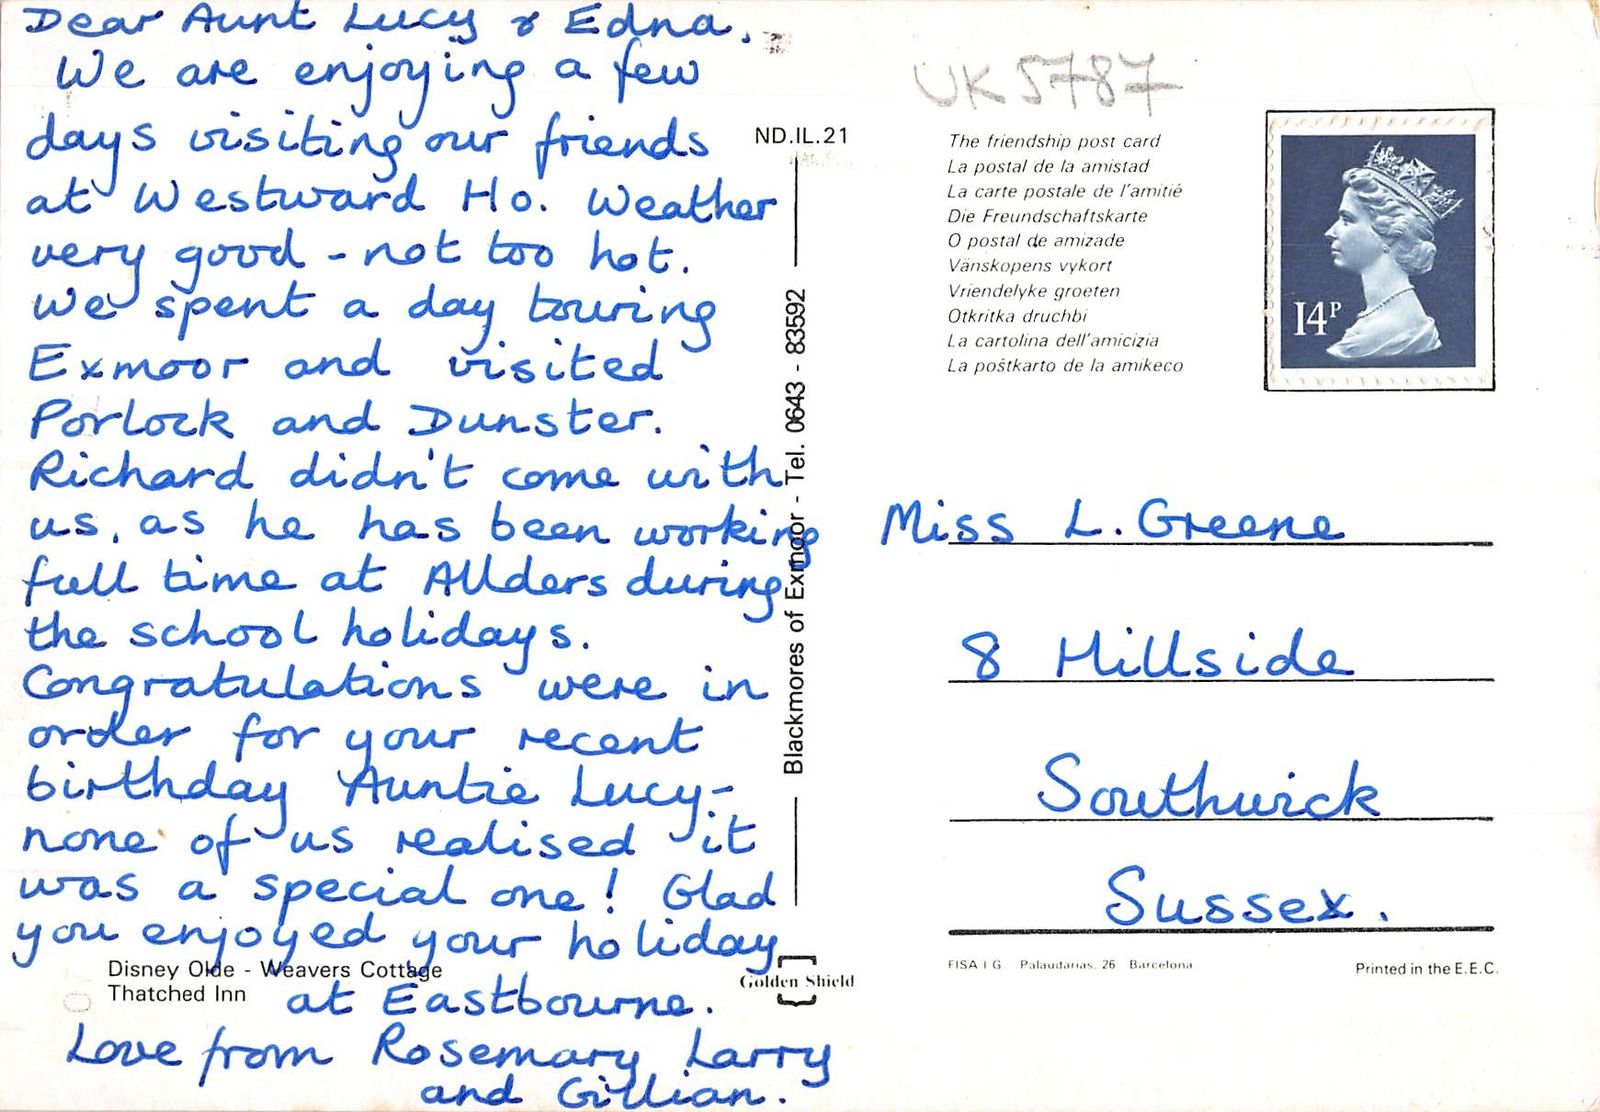 Dear Aunt Lucy & Edna.
We are enjoying a few
days visiting our friends
at Westward Ho. Weather
very good - not too hot.
We spent a day touring
Exmoor and visited
Porlock and Dunster.
Richard didn't come with
us, as he has been working
full time at Allders during
the school holidays.
Congratulations were in
order for your recent
birthday Auntie Lucy-
none of us realised it
was a special one! Glad
you enjoyed your holiday
at Eastbourne.
Love from Rosemary Larry
and Gillian.
Disney Olde - Weavers Cottage
Thatched Inn
ND.IL.21
Blackmores of Exmoor - Tel. 0643 - 83592
Golden Shield
UK 5787
The friendship post card
La postal de la amistad
La carte postale de l'amitié
Die Freundschaftskarte
O postal de amizade
Vänskopens vykort
Vriendelyke groeten
Otkritka druchbi
La cartolina dell'amicizia
La poŝtkarto de la amikeco
14P
Miss L. Greene
8 Hillside
Southwick
Sussex.
FISA I G Palaudarias, 26 Barcelona
Printed in the E.E.C.